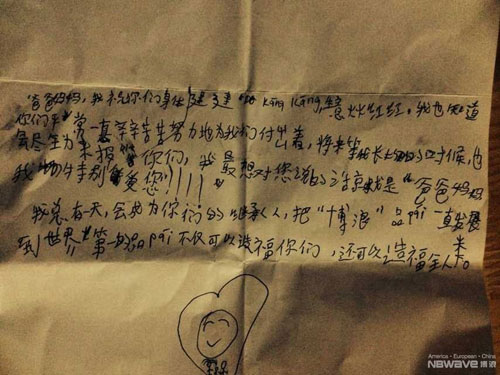 爸爸妈妈,我祝你们身体健建 kāng kāng,意火红红,我也知道
你们平常一直辛辛苦苦努力地为我们付出着,将来等我长大的时候,也
会尽全力来报你们,我最想对您说的话就是"爸爸妈妈
我特别爱您!!!!
我总有一天,会成为你们的继承人,把"博浪"品pái一直发展
到世界第一的品pái不仅可以造福你们,还可以造福全人类。
America · European · China
NBWave 博浪